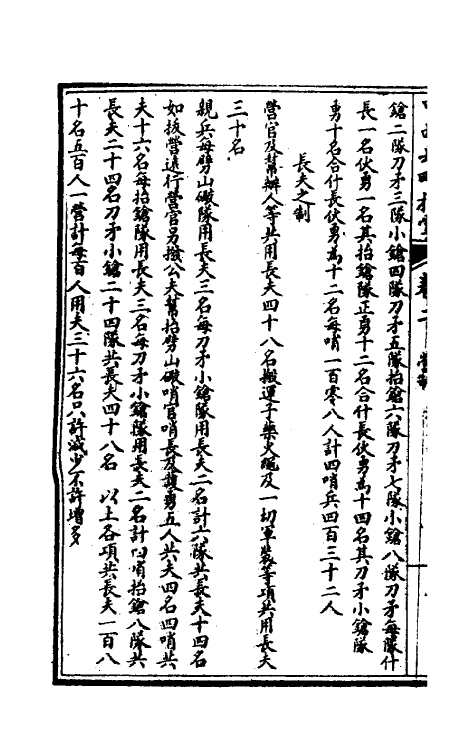 鎗二隊刀矛三隊小鎗四隊刀矛五隊抬鎗六隊刀矛七隊小鎗八隊刀矛每隊什
長一名伙勇一名其抬鎗隊正勇十二名合什長伙勇為十四名其刀矛小鎗隊
勇十名合什長伙勇為十二名每哨一百零八人計四哨兵四百三十二人
長夫之制
營官及幫辦人等共用長夫四十八名搬運子藥火繩及一切軍裝等項共用長夫
三十名
親兵每劈山礮隊用長夫三名每刀矛小鎗隊用長夫二名計六隊共長夫十四名
如拔營遠行營官另撥公夫幫抬劈山礮哨官哨長及護勇五人共夫四名四哨共
夫十六名每抬鎗隊用長夫三名每刀矛小鎗隊用長夫二名計四哨抬鎗八隊共
長夫二十四名刀矛小鎗二十四隊共長夫四十八名 以上各項共長夫一百八
十名五百人一營計每百人用夫三十六名只許減少不許增多
卷二 營制